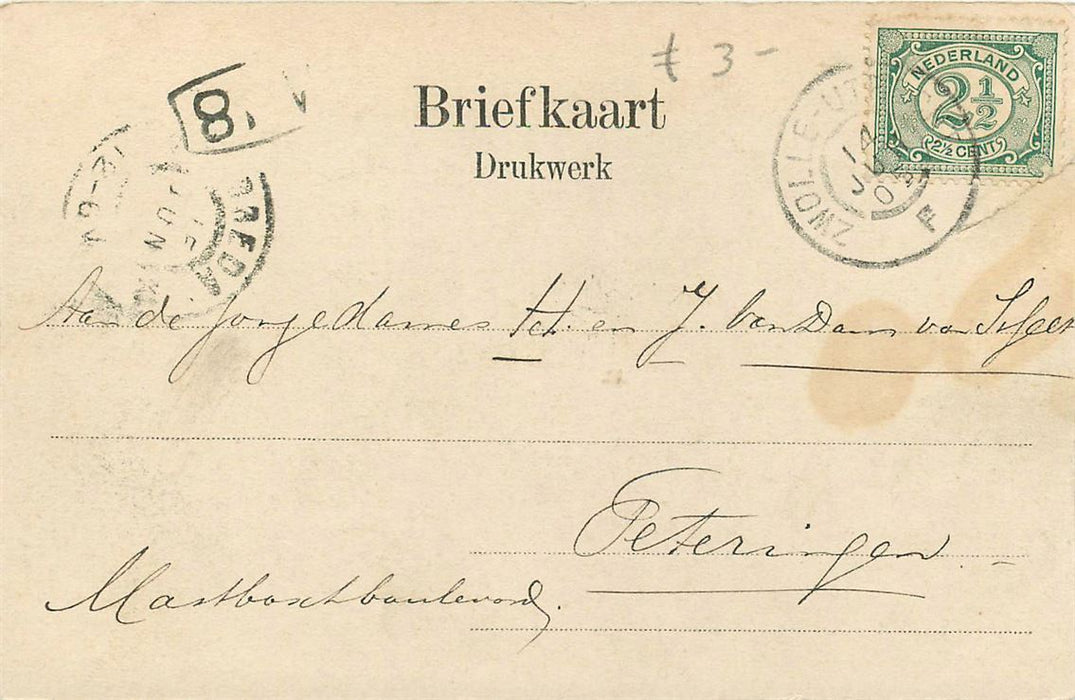 ƒ 3 -
Briefkaart
Drukwerk
NEDERLAND
2 1/2
2½ CENT
ZWOLLE-UT
14
F
8
BREDA
Aan de Jonge dames en J. van Dam van
Teteringen
Mastboschboulevard.